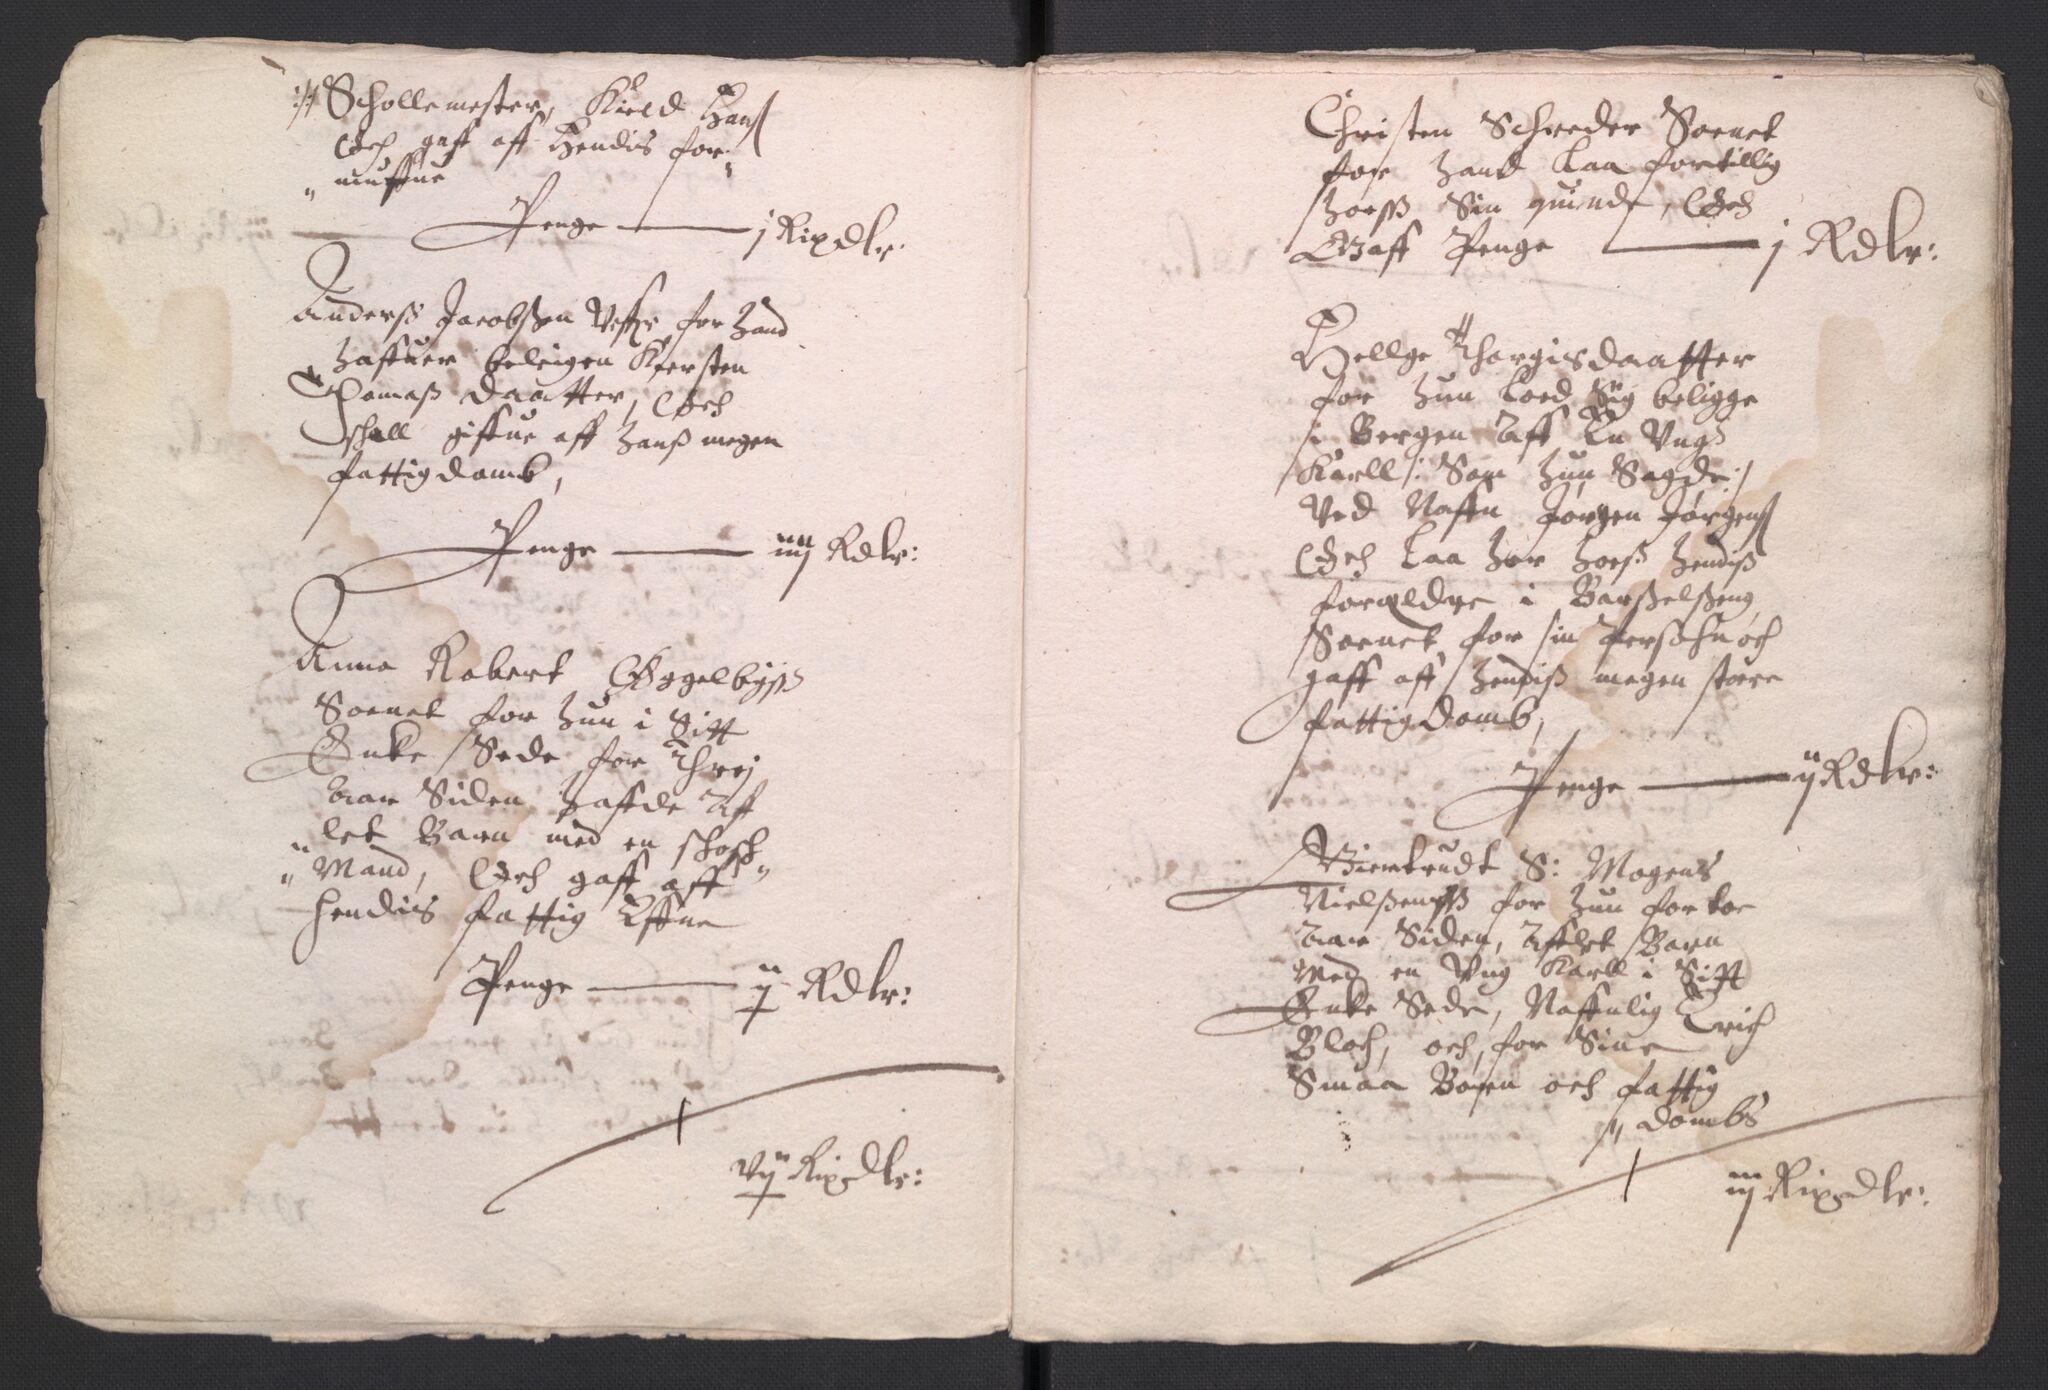 :/: Schollemester, Kield Hanß
Och gaff aff Hendis for-
muffue
Penge — j Rixdlr:
Anderß Jacobßen for hand
haffuer beleigen Kiersten
Thomaß daatter, Och
schall giffue aff hanß megen
fattigdomb,
Penge — iiij Rdlr:
Anna Robert
Soenet for hun i Sitt
Enke Sede for Threj
Aar Siden haffde Aff
let Barn med en
Mand, Och gaff aff
hendis fattig Effne
Penge — ij Rdlr:
vij Rixdlr:
Christen Schreder Soenet
for hand Laa fortillig
hoeß Sin quinde, Och
Gaff Penge — j Rdlr:
Hellge Thorgisdaatter
for hun Loed Sig beligge
i Bergen Aff En Vng
Karll /: Som hun Sagde :/
Ved Naffn Jørgen Jørgenß
Och Laa her hoeß hendiß
forældre i Barßelßeng
Soenet for sin Persohn och
gaff aff hendiß megen stoere
fattigdomb,
Penge — ij Rdlr:
Giertrudt S: Mogens
Nielßenß for hun for toe
Aar Siden, Afflet Barn
Med en Vng Karll i Sitt
Enke Sede, Naffnlig Erich
Bloch, och for Sine
Smaa Børn och fattig
dombs
iij Rixdlr: